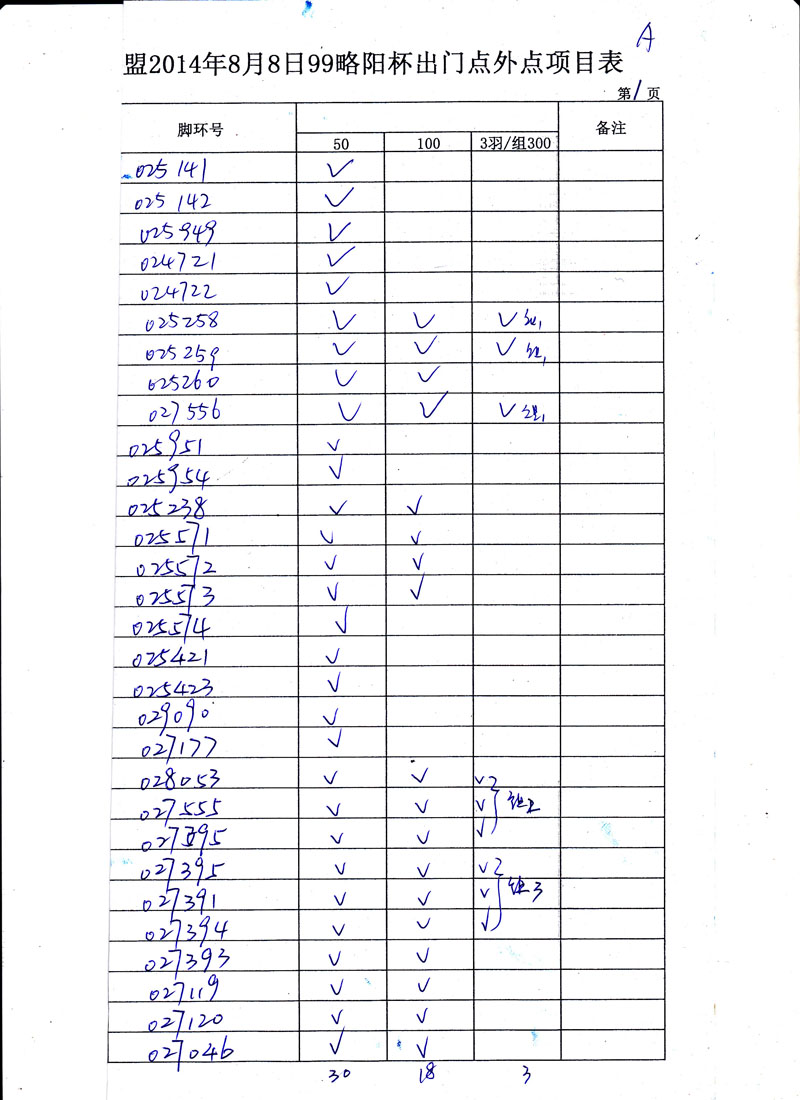 A
盟2014年8月8日99略阳杯出门点外点项目表
第1页
脚环号 备注
50 100 3羽/组300
025141 ✓
025142 ✓
025949 ✓
024721 ✓
024722 ✓
025258 ✓ ✓ ✓组1
025259 ✓ ✓ ✓组1
025260 ✓ ✓
027556 ✓ ✓ ✓组1
025951 ✓
025954 ✓
025238 ✓ ✓
025571 ✓ ✓
025572 ✓ ✓
025573 ✓ ✓
025574 ✓
025421 ✓
025423 ✓
029090 ✓
027177 ✓
028053 ✓ ✓ ✓
027555 ✓ ✓ ✓ 组2
✓ ✓ ✓
027395 ✓ ✓ ✓
027391 ✓ ✓ ✓ 组3
027394 ✓ ✓ ✓
027393 ✓ ✓
027119 ✓ ✓
027120 ✓ ✓
027046 ✓ ✓
30 18 3